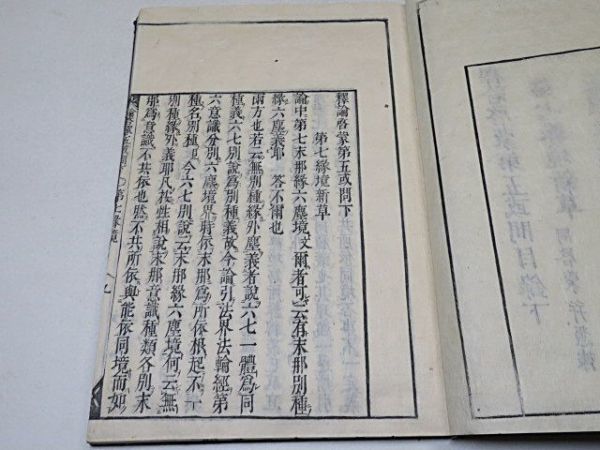 釋論啓蒙第五或問下
第七緣境新草
論中第七末那緣六塵境文爾者可云有末那別種
緣六塵義耶 答不爾也
兩方也若云無別種緣外塵義者說六七一體爲同
種義六七別說爲別種義故今論引法界法輪經第
六意識分別六塵境界時依末那爲所依根起不
種名別種也今六七別說云末那緣六塵境何云無
別種緣外義耶凡按性相說末那意識種類各別末
那爲意識不共依也然不共所依與能依同境而如
第七緣境